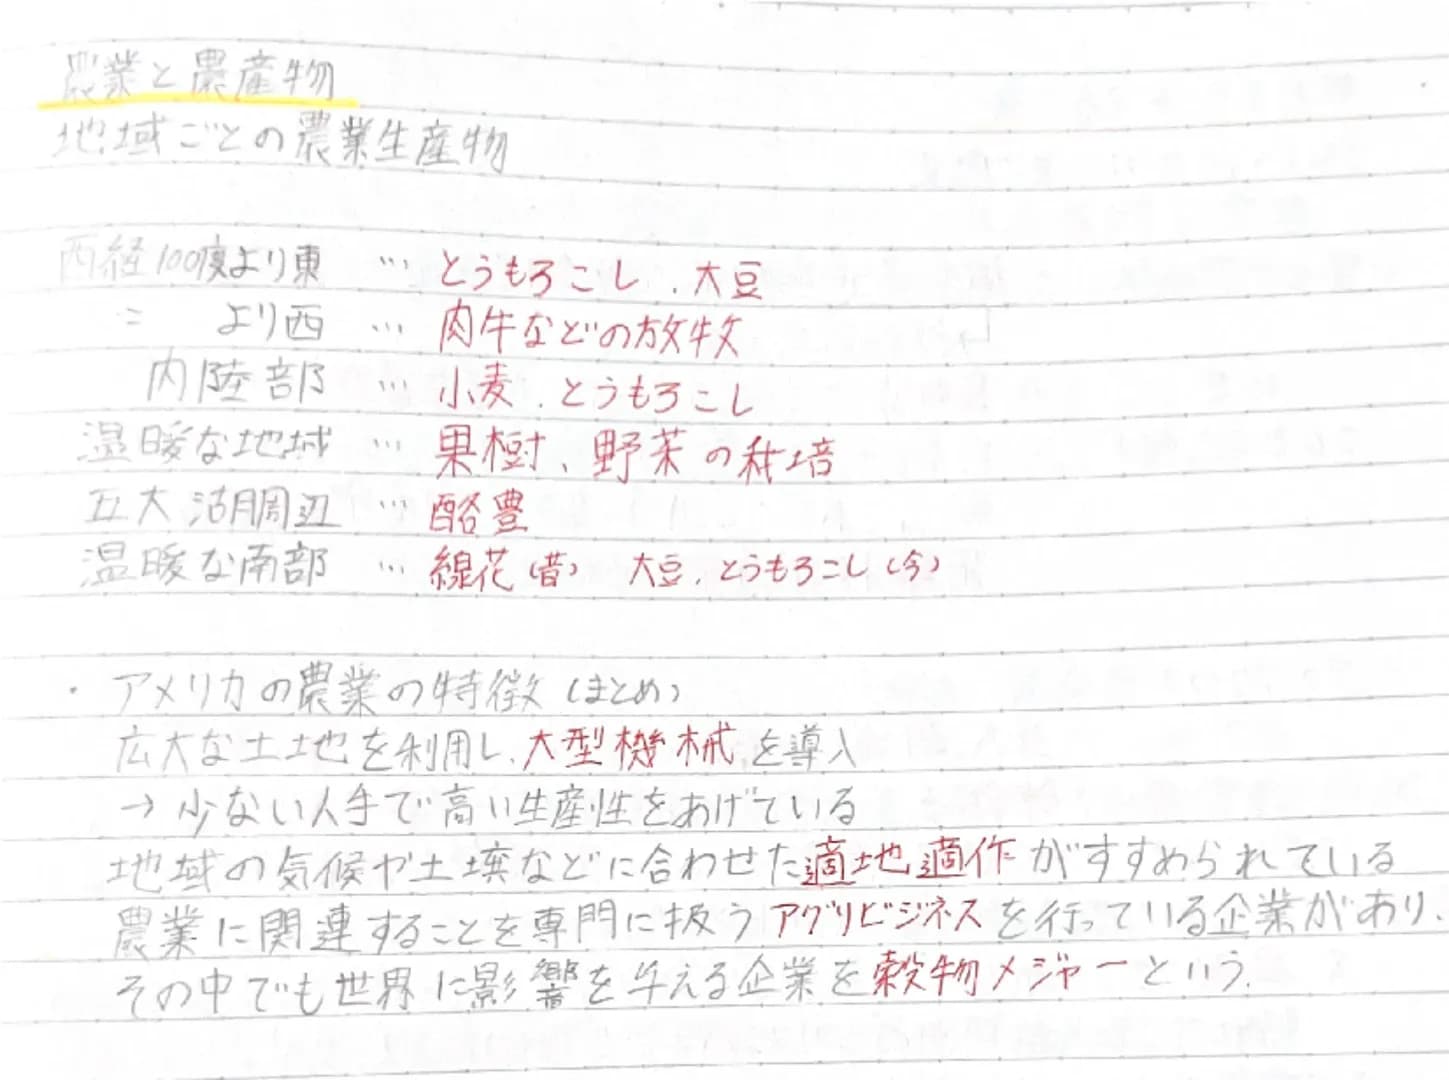 農業と農産物
地域ごとの農業生産物
西経100度より東 … とうもろこし、大豆
〃 より西 … 肉牛などの放牧
内陸部 … 小麦、とうもろこし
温暖な地域 … 果樹、野菜の栽培
五大湖周辺 … 酪豊
温暖な南部 … 線花(昔) 大豆、とうもろこし(今)
・アメリカの農業の特徴(まとめ)
広大な土地を利用し、大型機械を導入
→少ない人手で高い生産性をあげている
地域の気候や土壌などに合わせた適地適作がすすめられている
農業に関連することを専門に扱うアグリビジネスを行っている企業があり、
その中でも世界に影響を与える企業を穀物メジャーという。